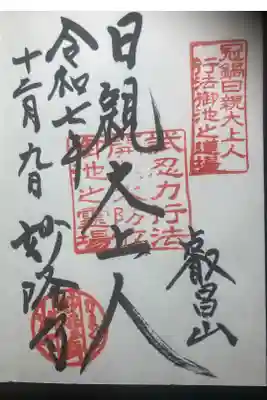 冠鍋日親大上人
行法御池之道場
叡昌山
日親大上人
忍力行法
池之霊場
令和七年
十二月九日
妙隆寺